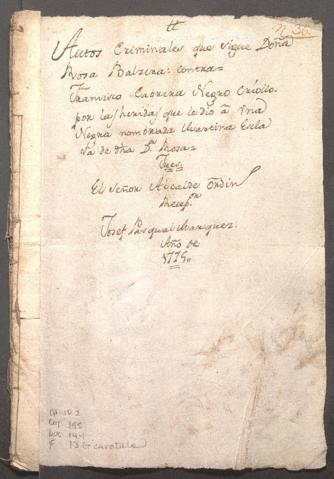 Autos Criminales que sigue Doña
Rosa Balzera: contra=
Francisco Cabrera Negro Criollo.
por las heridas que le dio à Vna
Negra nombrada Martina Escla
va de dha Dª Rosa=
Juez
El Señor Alcalde Ordin
Recepᵒʳ
Josef Pasqual Marquez.
Año de
1775,,
13 + caratula